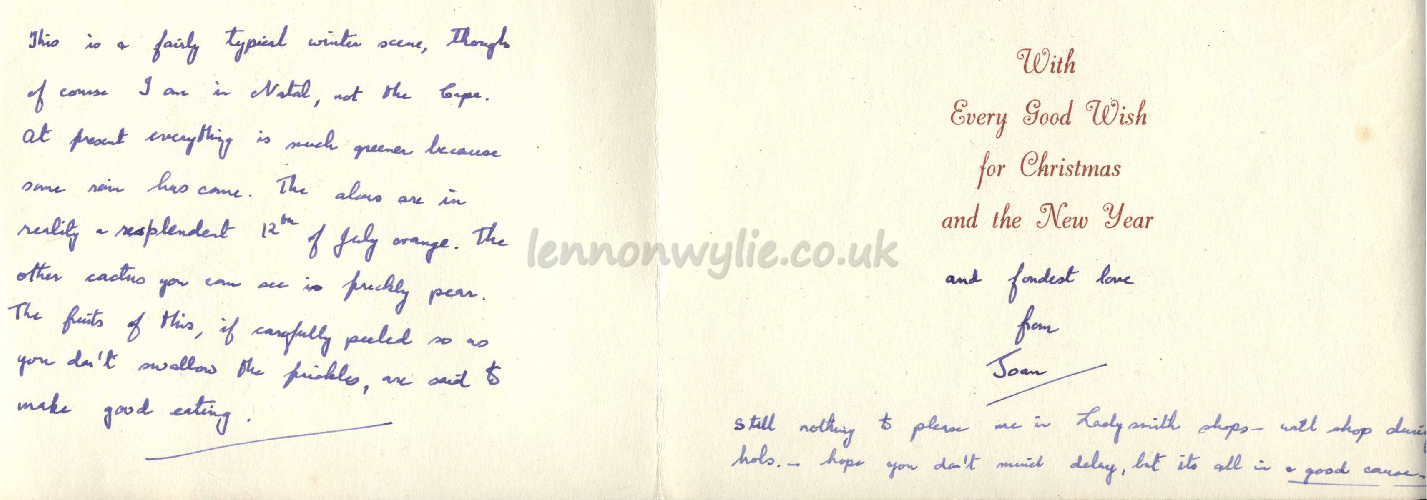 This is a fairly typical winter scene, though
of course I am in Natal, not the Cape.
At present everything is much greener because
some rain has come. The aloes are in
reality a resplendent 12th of July orange. The
other cactus you can see is prickly pear.
The fruits of this, if carefully peeled so as
you don't swallow the prickles, are said to
make good eating.
lennonwylie.co.uk
With
Every Good Wish
for Christmas
and the New Year
and fondest love
from
Joan
Still nothing to please me in Ladysmith shops - will shop during
hols. - hope you don't mind delay, but its all in a good cause -